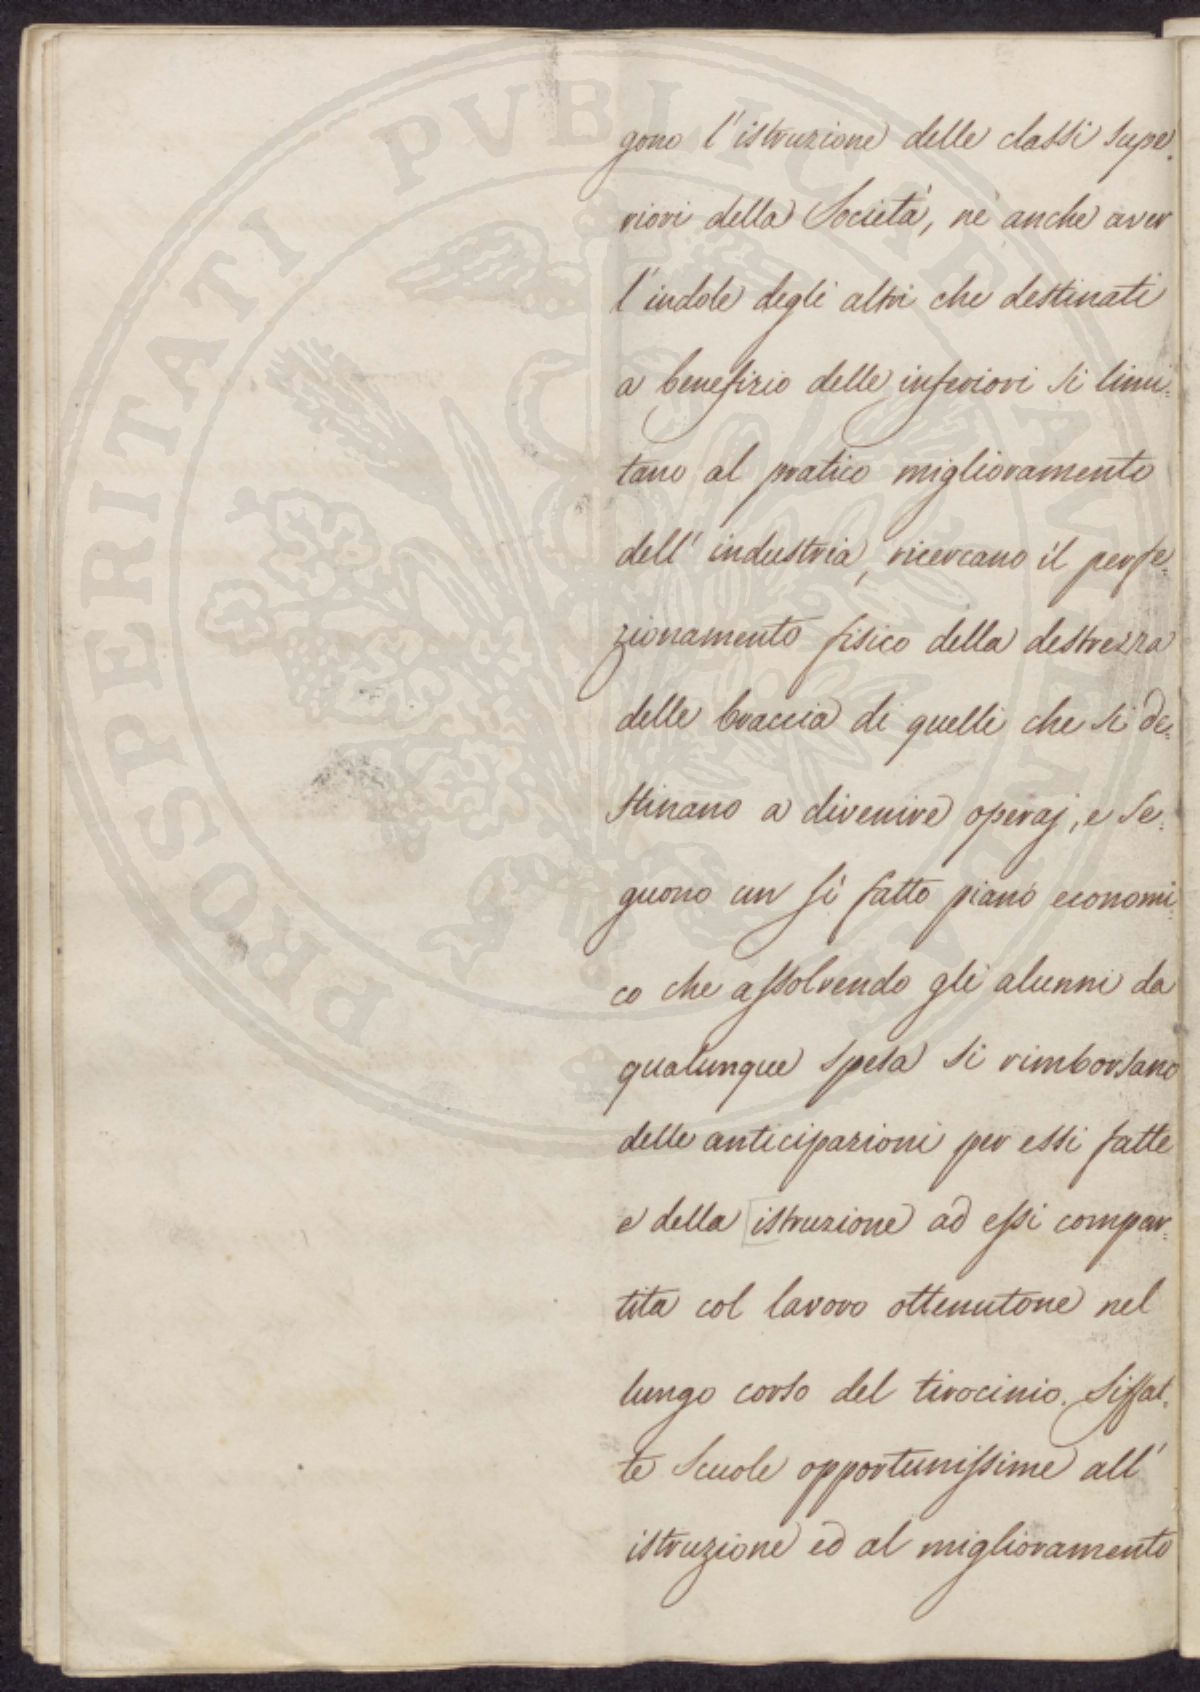 gono l'istruzione delle classi supe.
riori della Società, nè anche aver
l'indole degli altri che destinati
a benefizio delle inferiori si limi.
tano al pratico miglioramento
dell'industria, ricercano il perfe.
zionamento fisico della destrezza
delle braccia di quelli che si de.
stinano a divenire operaj, e se.
guono un sì fatto piano economi
co che assolvendo gli alunni da
qualunque spesa si rimborsano
delle anticipazioni per essi fatte
e della [istruzione ad essi compar.
tita col lavoro ottenutone nel
lungo corso del tirocinio. Siffat.
te Scuole opportunissime all'
istruzione ed al miglioramento
PROSPERITATI PVBLICAE AVGENDAE